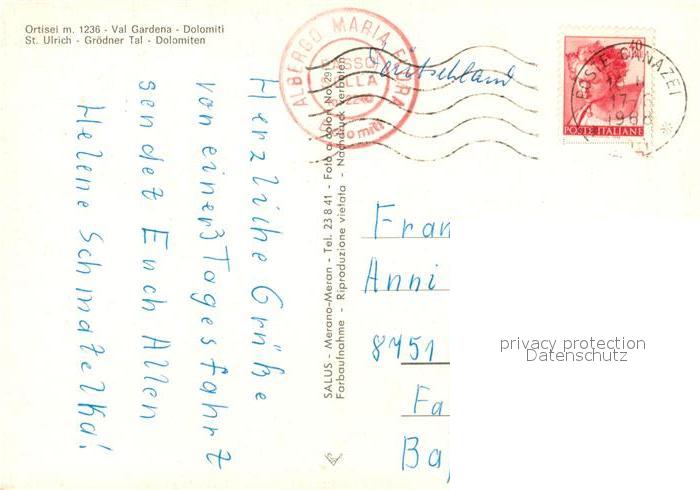 Ortisei m. 1236 - Val Gardena - Dolomiti
St. Ulrich - Grödner Tal - Dolomiten
ALBERGO MARIA FLORA
PASSO
SELLA
m. 2240
Dolomiti
Deutschland
40
POSTE ITALIANE
CANAZEI
17
196
Herzliche Grüße
von einer 3 Tagesfahrt
sendet Euch Allen
Helene Schmatelka!
SALUS - Merano-Meran - Tel. 23841 - Foto a colori No. 291
Farbaufnahme - Riproduzione vietata - Nachdruck verboten
Fran
Anni
8451
Fa
Ba
privacy protection
Datenschutz